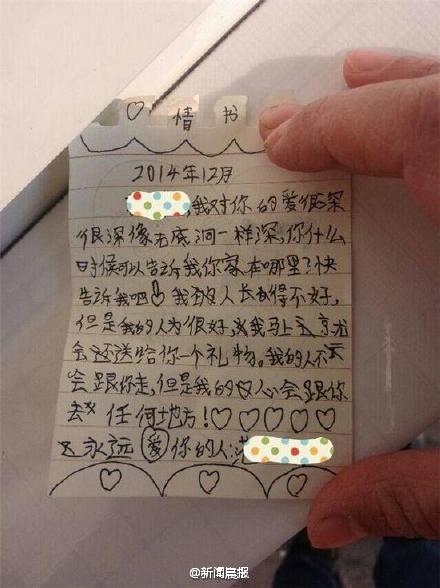 ♡ 情 书
2014年12月
,我对你的爱很深
很深像无底洞一样深,你什么
时候可以告诉我你家在哪里?快
告诉我吧!我人长得不好,
但是我的人为很好,我马上
会还送给你一个礼物。我的人不
会跟你走,但是我的心会跟你
去 任何地方!♡♡♡♡♡
永远爱你的人:
@新闻晨报